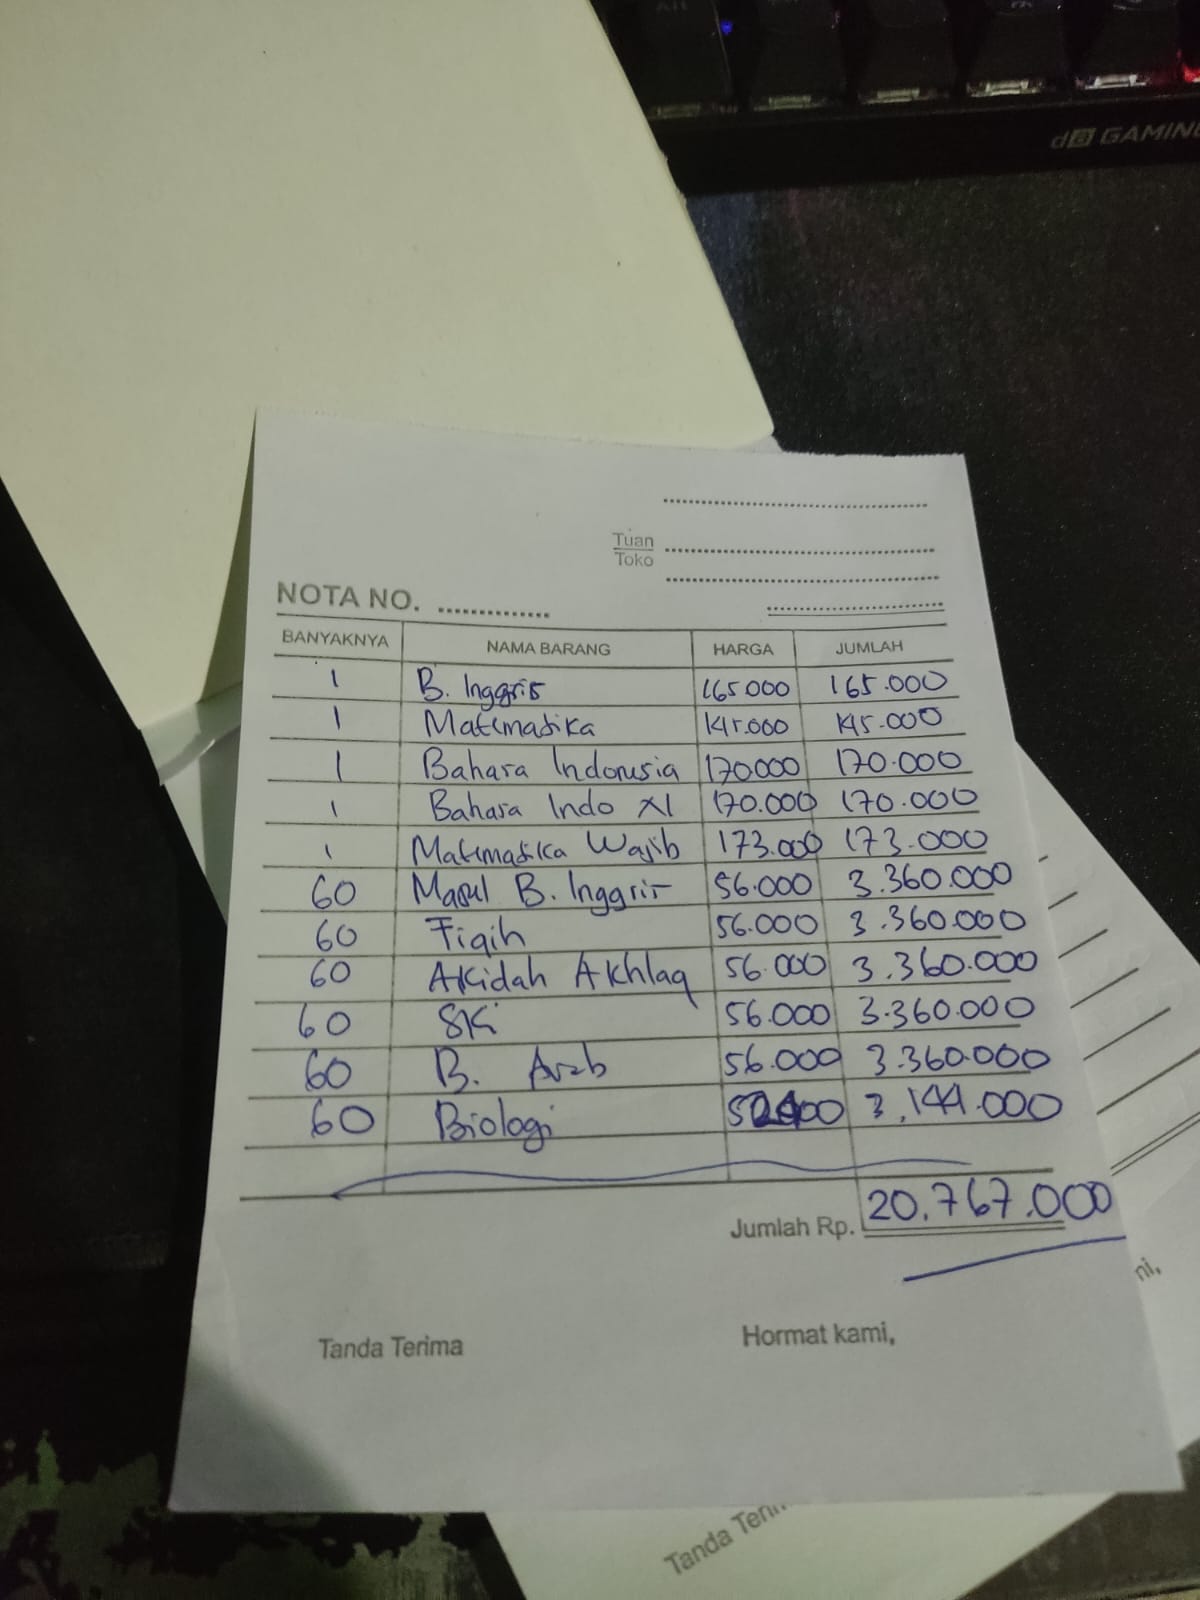 GAMING
Tuan
Toko
NOTA NO. ..............
BANYAKNYA NAMA BARANG HARGA JUMLAH
1 B. Inggris 165.000 165.000
1 Matematika 145.000 145.000
1 Bahasa Indonesia 170.000 170.000
1 Bahasa Indo XI 170.000 170.000
1 Matematika Wajib 173.000 173.000
60 Mapul B. Inggris 56.000 3.360.000
60 Fiqih 56.000 3.360.000
60 Akidah Akhlaq 56.000 3.360.000
60 SKi 56.000 3.360.000
60 B. Arab 56.000 3.360.000
60 Biologi 3,144.000
Jumlah Rp. 20.767.000
ni,
Tanda Terima Hormat kami,